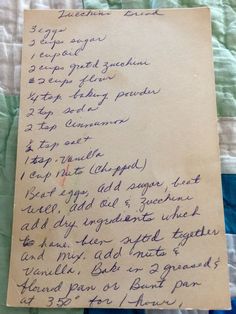 Zucchini Bread
3 eggs
2 cups sugar
1 cup oil
2 cups grat'd zucchini
2 cups flour
1/4 tsp baking powder
2 tsp soda
2 tsp Cinnamon
1/2 tsp salt
1 tsp. Vanilla
1 Cup Nuts (Chopped)
Beat eggs, add sugar, beat
well, add oil & zucchini
add dry ingredients which
have been sifted together
and mix. add nuts &
Vanilla. Bake in 2 greased &
floured pan or Bunt pan
at 350° for 1 hour.